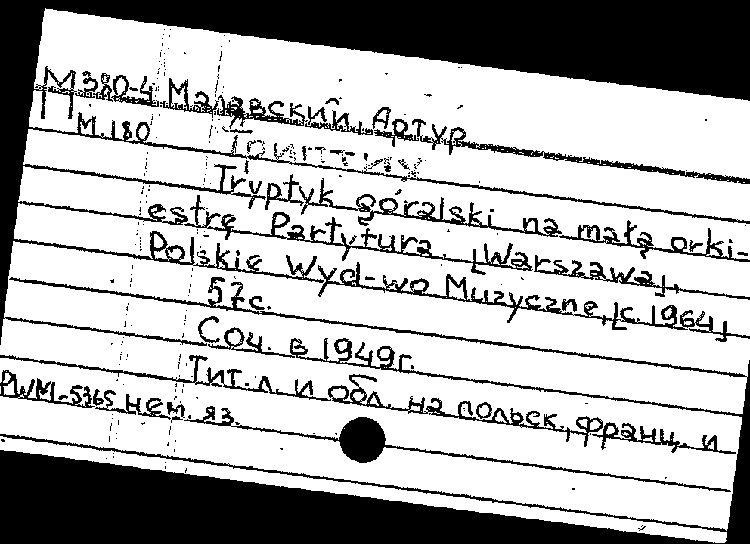 М380-4 Малавский, Артур
П М.180 Триптих
Tryptyk góralski na małą orki-
estrę Partytura. [Warszawa],
Polskie Wyd-wo Muzyczne, [c. 1964]
57с.
Соч. в 1949г.
Тит. л. и обл. на польск., франц. и
PWM-5365 нем. яз.